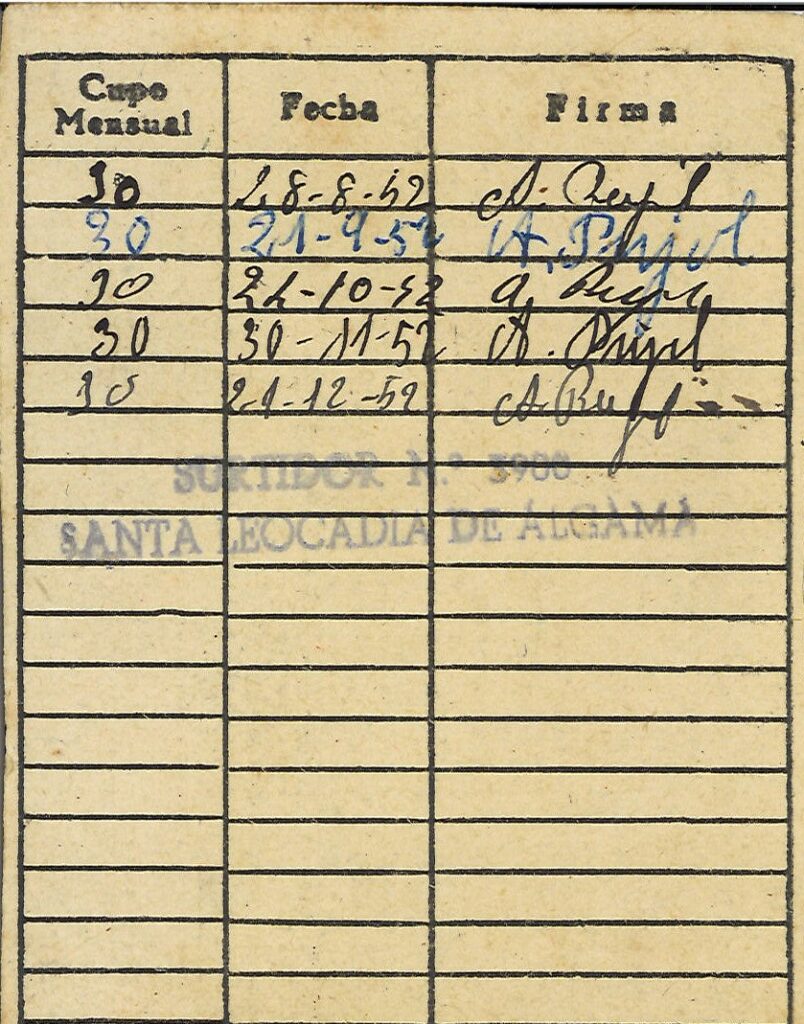 Cupo Mensual Fecha Firma
30 28-8-52 A. Pujol
30 21-9-52 A. Pujol
30 22-10-52 A. Pujol
30 30-11-52 A. Pujol
30 21-12-52 A. Pujol
SURTIDOR N.º
SANTA LEOCADIA DE ALGAMA